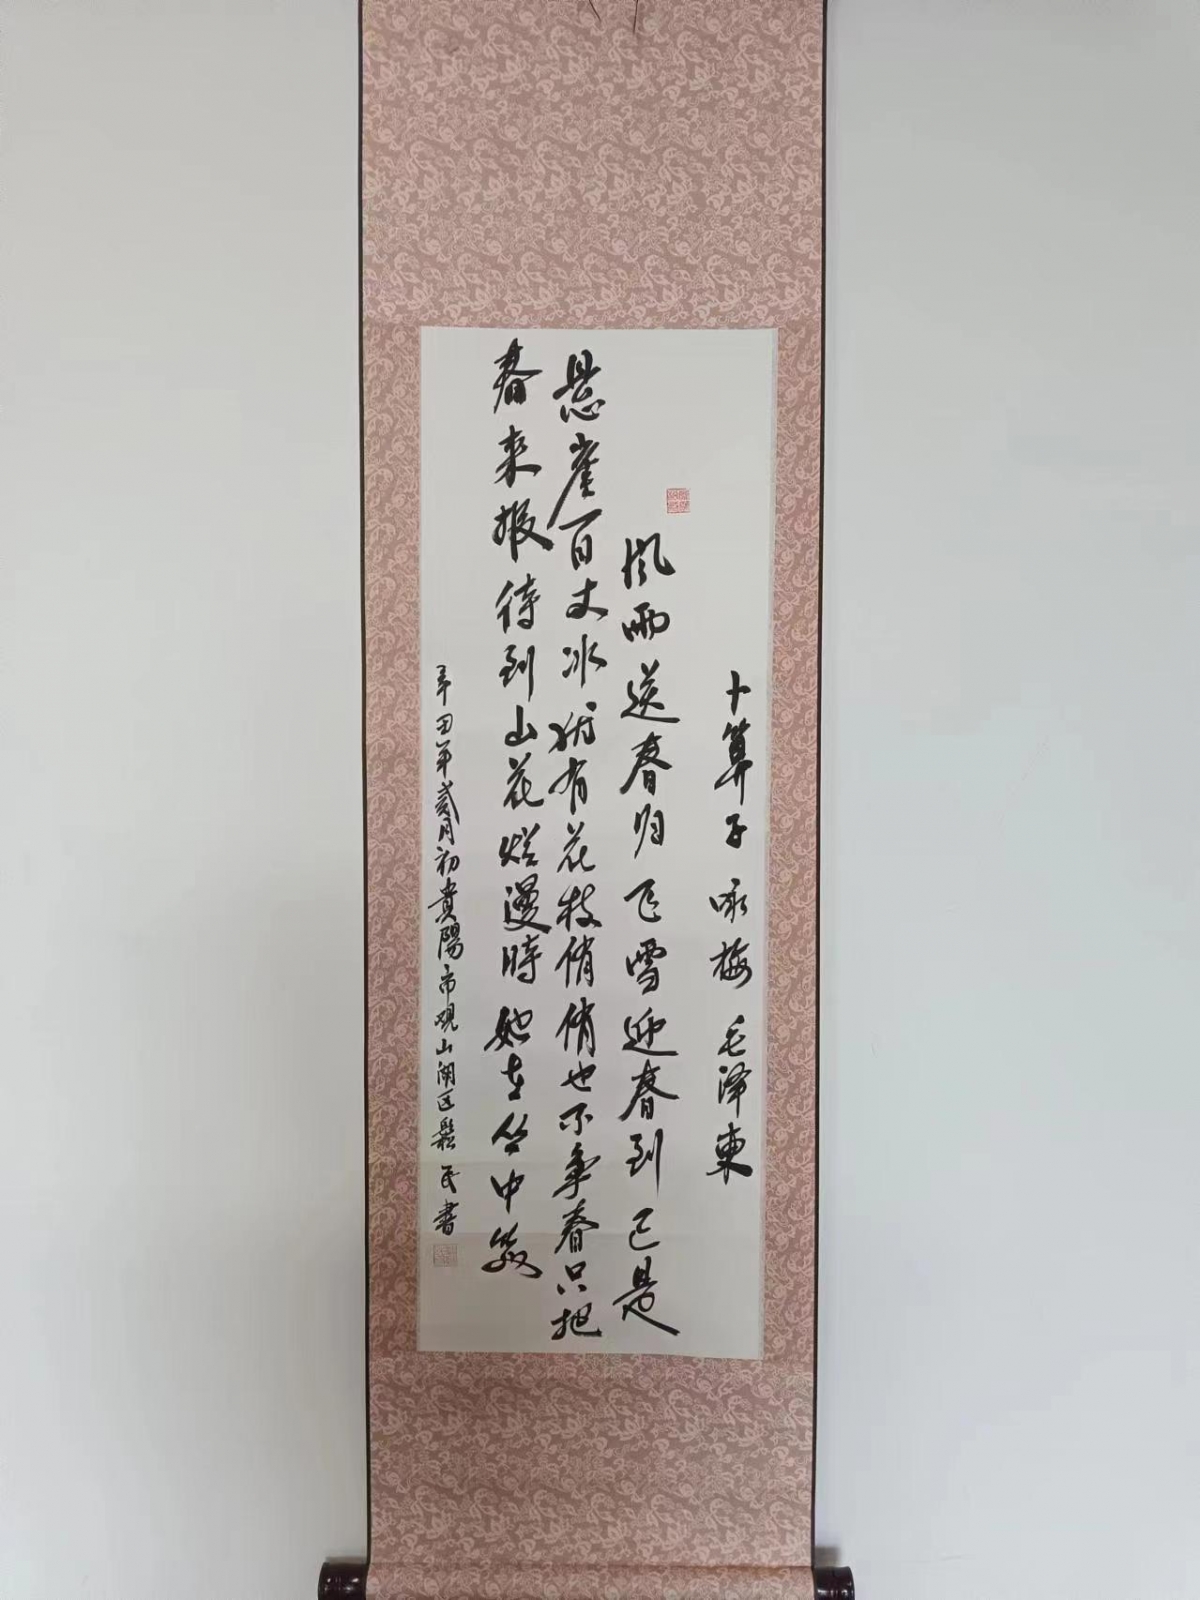 卜算子 咏梅 毛泽東
风雨送春归飞雪迎春到已是
悬崖百丈冰犹有花枝俏俏也不争春只把
春来报待到山花烂漫時她在丛中笑
年贰月初貴陽市观山湖区 民書